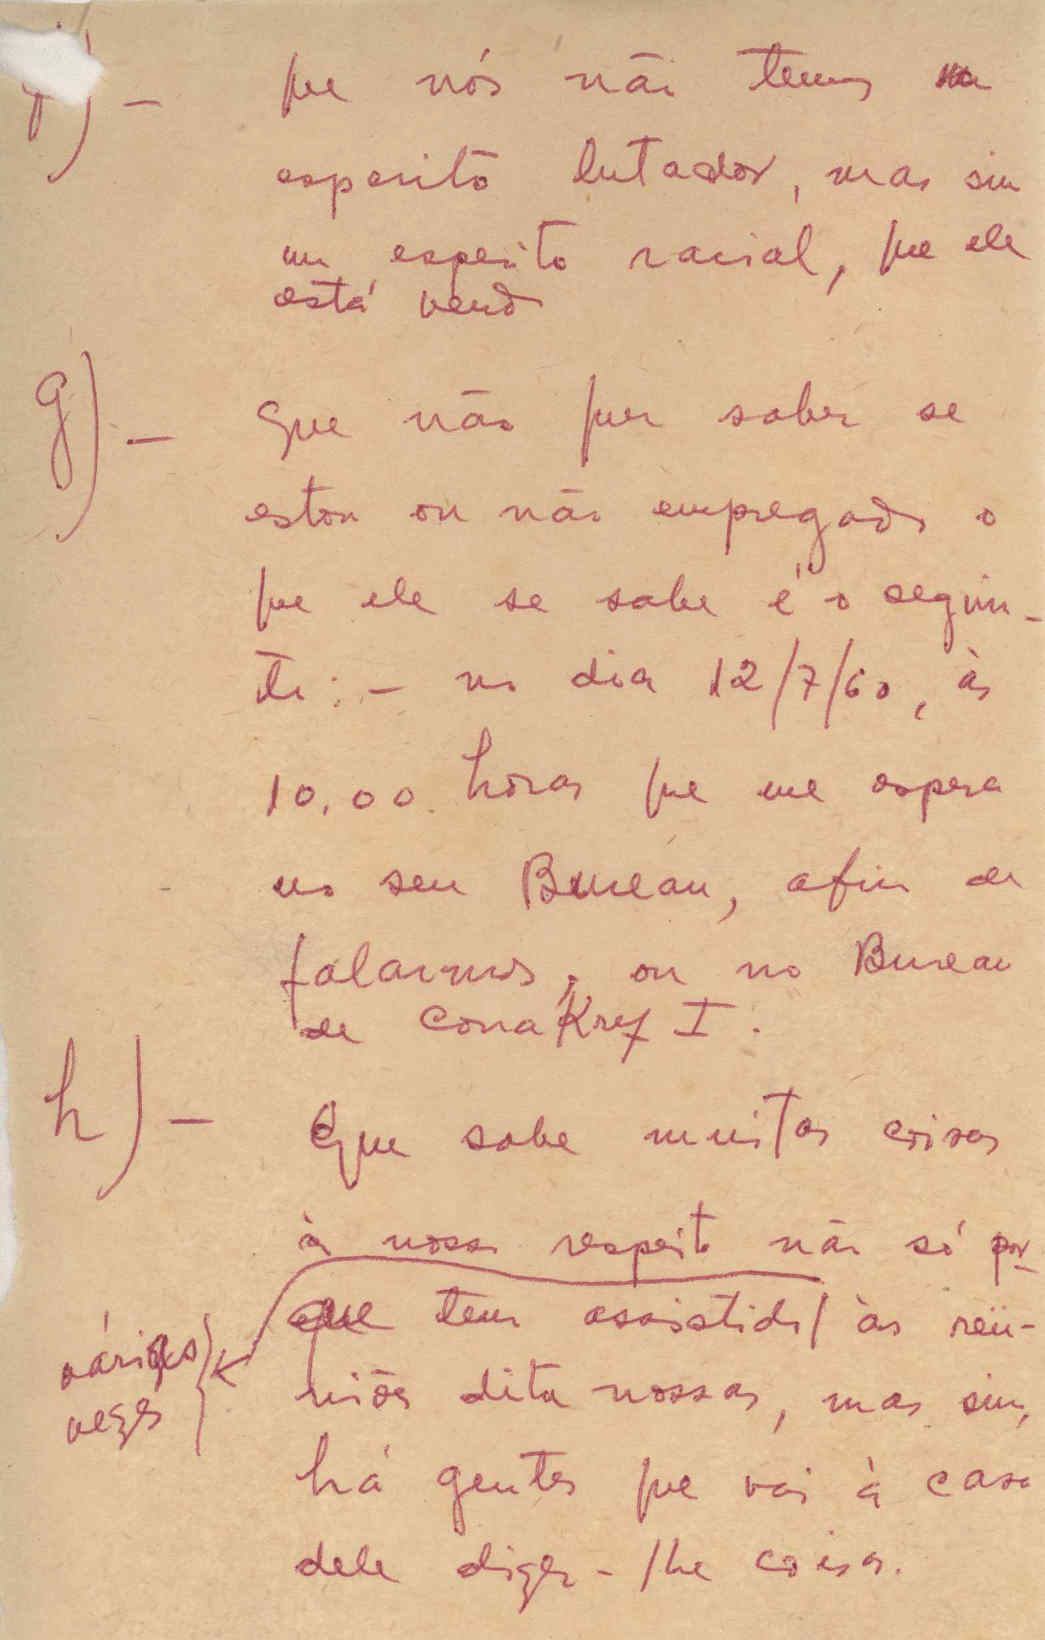 f) - que nós não temos um
esperito lutador, mas sim
um esperito racial, que ele
está vendo
g) - Que não quer saber se
estou ou não empregado o
que ele se sabe é o seguin-
te: - no dia 12/7/60, às
10,00 horas que me espera
no seu Bureau, afim de
falarmos, ou no Bureau
de Conakrey I.
h) - Que sabe muitas coisas
à nosso respeito não só por-
que tem assistido às reü-
niões dita nossas, mas sim,
várias
vezes
há gentes que vai à casa
dele dizer-lhe coisas.